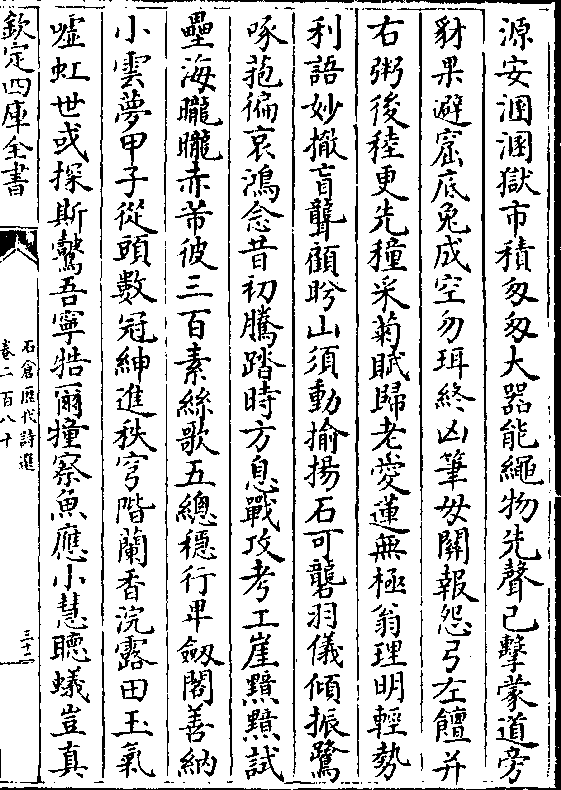 源安溷溷獄市積匆匆大器能繩物先聲已擊蒙道旁
豺果避窟底兔成空勿珥終凶筆毋關報怨弓左饘并
右粥後稑更先穜采菊賦歸老愛蓮無極翁理明輕勢
利語妙撤盲聾顧盻山須動揄揚石可礱羽儀傾振鷺
啄菢徧哀鴻念昔初騰踏時方息戰攻考工崖黯黯試
壘海曨曨赤芾彼三百素絲歌五總穩行卑劔閣善納
小雲夢甲子從頭數冠紳進秩穹階蘭香浣露田玉氣
噓虹世或探斯鷇吾寧牿爾㹐察魚應小慧聽蟻豈真
欽定四庫全書
石倉歷代詩選
卷二百八十
三十二